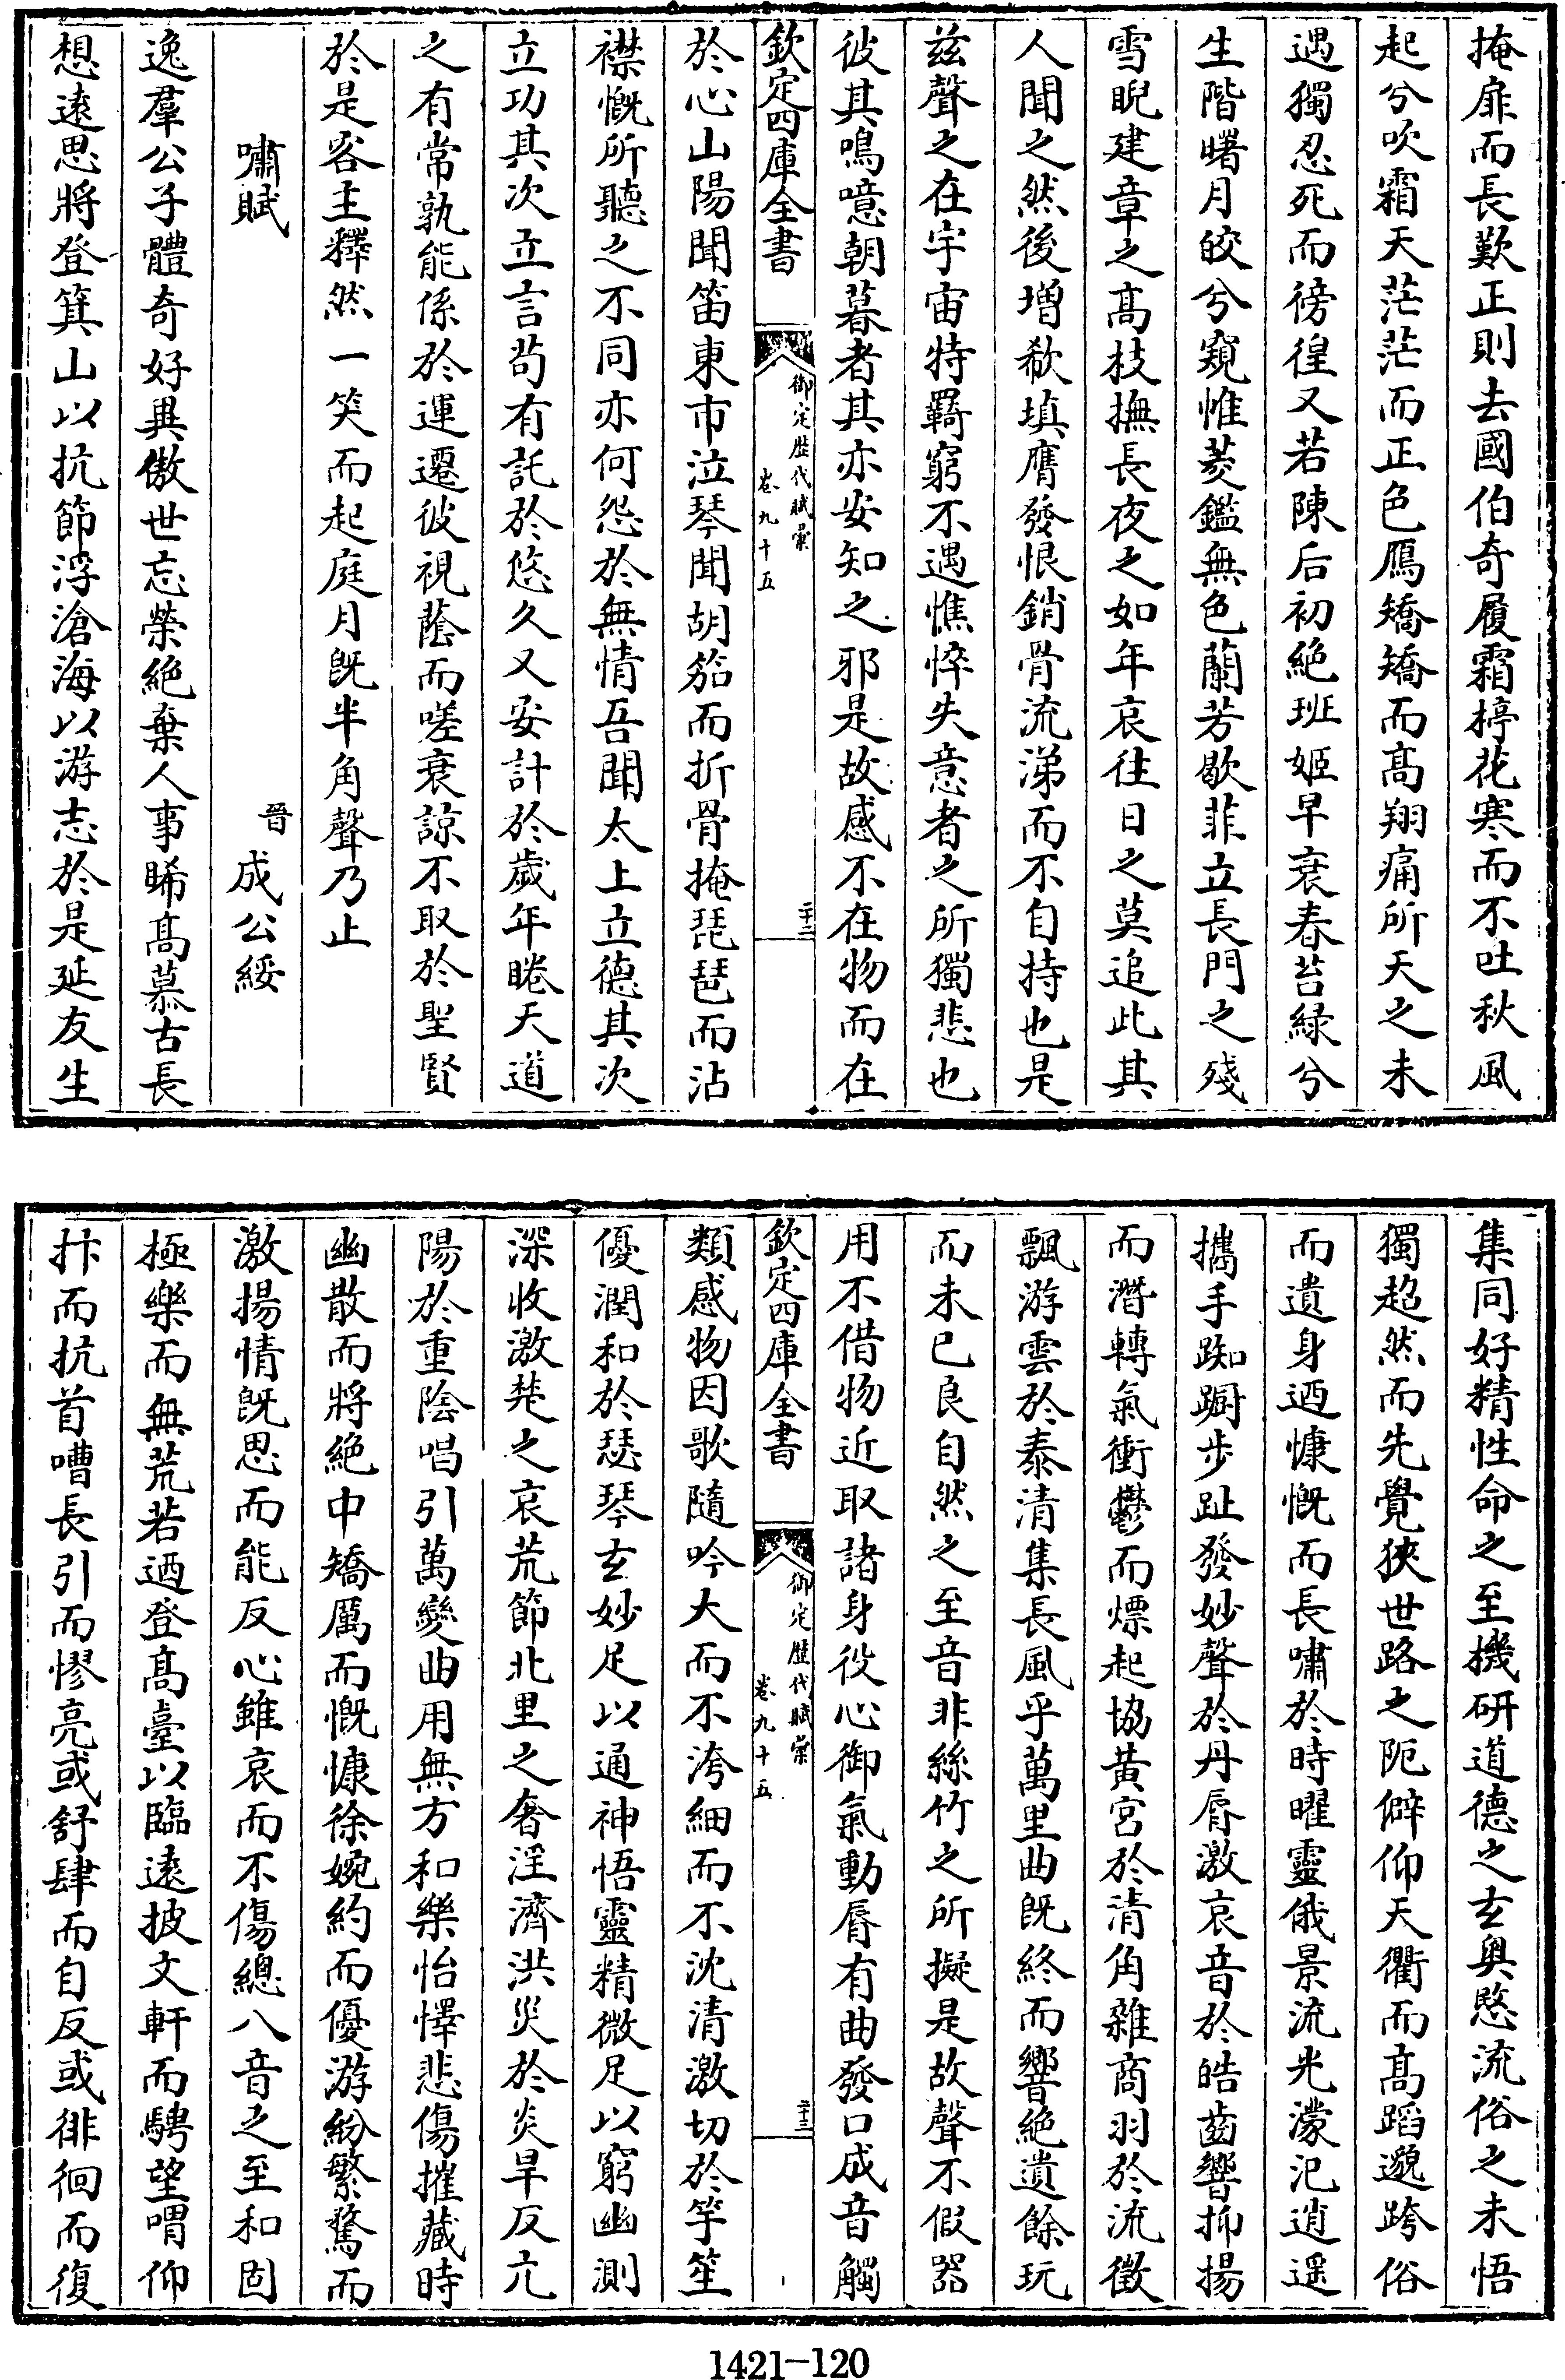 掩扉而長歎正則去國伯奇履霜楟花寒而不吐秋風
起兮吹霜天茫茫而正色鴈矯矯而高翔痛所天之未
遇獨忍死而徬徨又若陳后初絶班姬早衰春苔緑兮
生階曙月皎兮窺惟菱鑑無色蘭芳歇菲立長門之殘
雪睨建章之高枝撫長夜之如年哀往日之莫追此其
人聞之然後增欷填膺發恨銷骨流涕而不自持也是
兹聲之在宇宙特羇窮不遇憔悴失意者之所獨悲也
彼其鳴噫朝暮者其亦安知之邪是故感不在物而在
欽定四庫全書
御定歴代賦彙
卷九十五
二十二
於心山陽聞笛東市泣琴聞胡笳而折骨掩琵琶而沾
襟慨所聽之不同亦何怨於無情吾聞太上立德其次
立功其次立言苟有託於悠久又安計於歲年睠天道
之有常孰能係於運遷彼視蔭而嗟衰諒不取於聖賢
於是客主釋然一笑而起庭月既半角聲乃止
嘯賦
晉 成公綏
逸羣公子體奇好異傲世忘榮絶棄人事睎高慕古長
想遠思將登箕山以抗節浮滄海以游志於是延友生
集同好精性命之至機研道德之玄奥愍流俗之未悟
獨超然而先覺狹世路之阨僻仰天衢而高蹈邈跨俗
而遺身迺慷慨而長嘯於時曜靈俄景流光濛汜逍遥
攜手踟蹰步趾發妙聲於丹脣激哀音於皓齒響抑揚
而潛轉氣衝鬱而熛起協黄宫於清角雜商羽於流徵
飄游雲於泰清集長風乎萬里曲既終而響絶遺餘玩
而未已良自然之至音非絲竹之所擬是故聲不假器
用不借物近取諸身役心御氣動脣有曲發口成音觸
欽定四庫全書
御定歴代賦彙
卷九十五
二十三
類感物因歌隨吟大而不洿細而不沈清激切於竽笙
優潤和於瑟琴玄妙足以通神悟靈精微足以窮幽測
深收激楚之哀荒節北里之奢淫濟洪災於炎旱反亢
陽於重陰唱引萬變曲用無方和樂怡懌悲傷摧藏時
幽散而將絶中矯厲而慨慷徐婉約而優游紛繁騖而
激揚情既思而能反心雖哀而不傷總八音之至和固
極樂而無荒若迺登高臺以臨遠披文軒而騁望喟仰
抃而抗首嘈長引而憀亮或舒肆而自反或徘徊而復
1421-120